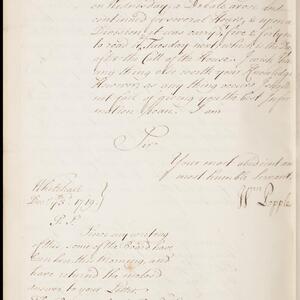 on Wednesday, a Debate arose and
continued for several Hours, & upon a
Division it was carry'd
to read it Tuesday next which is the Day
after the Call of the House. I wish
any thing else worth your Knowledge
However as any thing occurs I shall
not fail of giving you the best Infor
mation I can. I am
Sir
Your most obedient and
most humble Servant
Wm Popple
Whitehall
1719.
Since my writing
of this some of the Board have
been here this morning, and
have return'd the inclosed
answer to your Letter.